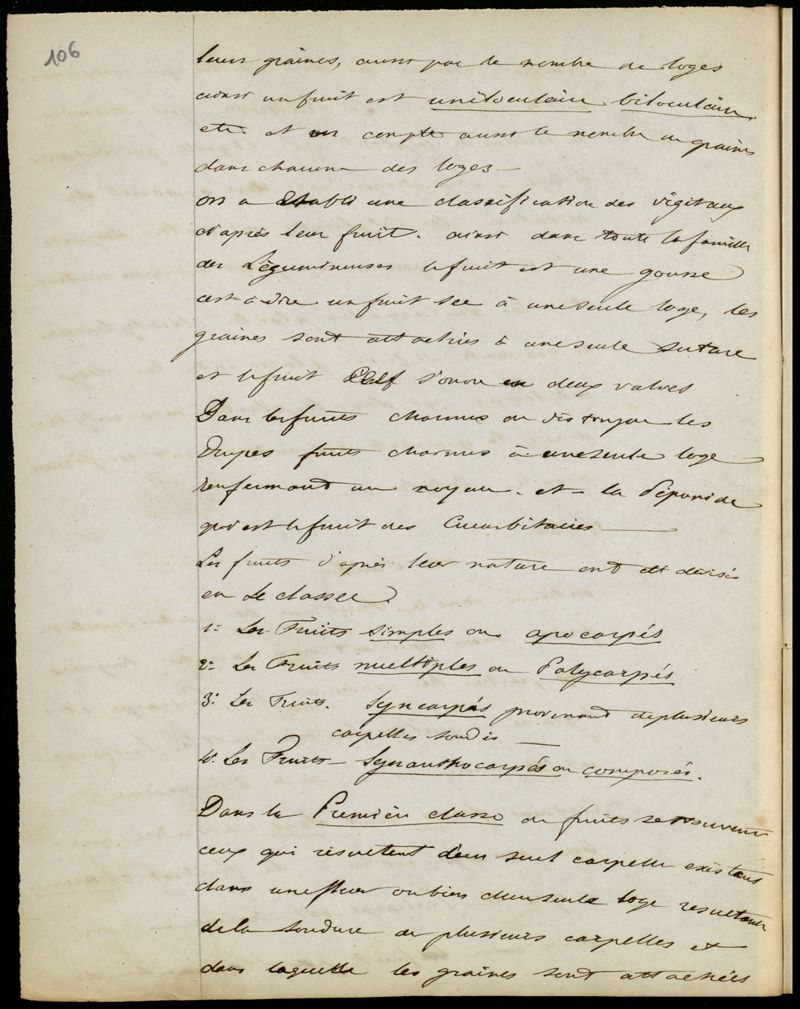 106
leurs graines, aussi par le nombre de loges
ainsi un fruit est uniloculaire biloculaire
etc. et on compte aussi le nombre de graines
dans chacune des loges —
on a établi une classification des végétaux
d'après leur fruit. ainsi dans toute la famille
des Légumineuses le fruit est une gousse
c'est à dire un fruit sec à une seule loge, les
graines sont attachées à une seule suture
et le fruit s'ouvre en deux valves
Dans les fruits charnus on distingue les
Drupes fruits charnus à une seule loge
renfermant un noyau. et la Péponide
qui est le fruit des Cucurbitacées —
Les fruits d'après leur nature ont été divisés
en classes
1º Les Fruits simples ou apocarpés
2º Les Fruits multiples ou Polycarpés
3º Les Fruits. Syncarpés provenant de plusieurs
carpelles soudés —
4º Les Fruits — Synanthocarpés ou composés.
Dans la Première classe de fruits se trouvent
ceux qui résultent d'un seul carpelle existant
dans une fleur ou bien d'une seule loge résultant
de la soudure de plusieurs carpelles et
dans laquelle les graines sont attachées